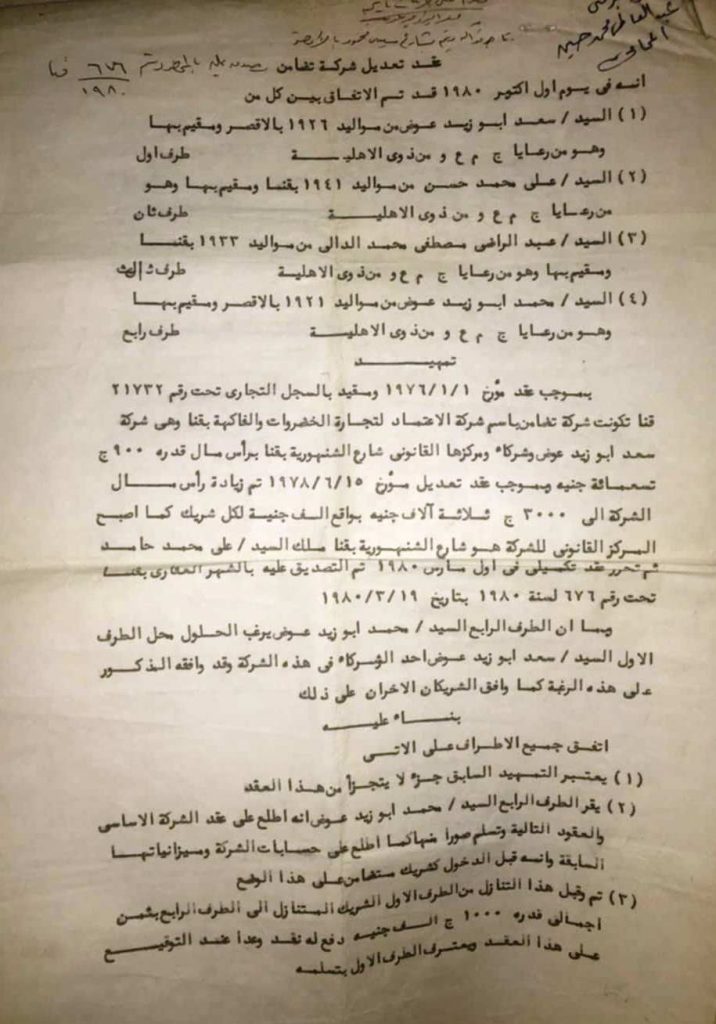 عقد تعديل شركة تضامن
٦٧٦
١٩٨٠
انه فى يوم اول اكتوبر ١٩٨٠ قد تم الاتفاق بين كل من
(١) السيد / سعد ابو زيد عوض من مواليد ١٩٢٦ بالاقصر ومقيم بها
وهو من رعايا ج م ع و من ذوى الاهلية طرف اول
(٢) السيد / على محمد حسن من مواليد ١٩٤١ بقنا ومقيم بها وهو
من رعايا ج م ع و من ذوى الاهلية طرف ثان
(٣) السيد / عبد الراضى مصطفى محمد الدالى من مواليد ١٩٣٣ بقنا
ومقيم بها وهو من رعايا ج م ع و من ذوى الاهلية طرف ثالث
(٤) السيد / محمد ابو زيد عوض من مواليد ١٩٢١ بالاقصر ومقيم بها
وهو من رعايا ج م ع و من ذوى الاهلية طرف رابع
تمهيد
بموجب عقد مؤرخ ١٩٧٦/١/١ ومقيد بالسجل التجارى تحت رقم ٢١٧٣٢
قنا تكونت شركة تضامن باسم شركة الاعتماد لتجارة الخضروات والفاكهة بقنا وهى شركة
سعد ابو زيد عوض وشركاه ومركزها القانونى شارع الشنهورية بقنا برأس مال قدره ٩٠٠ ج
تسعمائة جنيه وبموجب عقد تعديل مؤرخ ١٩٧٨/٦/١٥ تم زيادة رأس مال
الشركة الى ٣٠٠٠ ج ثلاثة آلاف جنيه بواقع الف جنية لكل شريك كما اصبح
المركز القانونى للشركة هو شارع الشنهورية بقنا ملك السيد / على محمد حامد
ثم تحرر عقد تكميلى فى اول مارس ١٩٨٠ تم التصديق عليه بالشهر العقارى بقنا
تحت رقم ٦٧٦ لسنة ١٩٨٠ بتاريخ ١٩٨٠/٣/١٩
وبما ان الطرف الرابع السيد / محمد ابو زيد عوض يرغب الحلول محل الطرف
الاول السيد / سعد ابو زيد عوض احد الشركاء فى هذه الشركة وقد وافقه المذكور
على هذه الرغبة كما وافق الشريكان الاخران على ذلك
بناء عليه
اتفق جميع الاطراف على الاتى
(١) يعتبر التمهيد السابق جزء لا يتجزأ من هذا العقد
(٢) يقر الطرف الرابع السيد / محمد ابو زيد عوض انه اطلع على عقد الشركة الاساسى
والعقود التالية وتسلم صورا منها كما اطلع على حسابات الشركة وميزانياتها
السابقة وانه قبل الدخول كشريك متضامن على هذا الوضع
(٣) تم وقبل هذا التنازل من الطرف الاول الشريك المتنازل الى الطرف الرابع بثمن
اجمالى قدره ١٠٠٠ ج الف جنيه دفع له نقد وعدا عند التوقيع
على هذا العقد ويعترف الطرف الاول بتسلمه